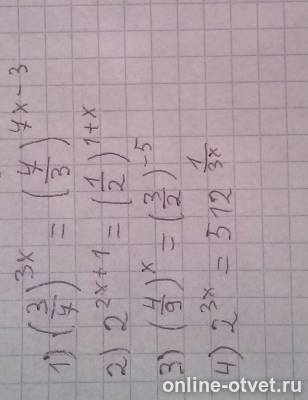 1) (3/7)^3x = (7/3)^7x-3
2) 2^2x+1 = (1/2)^1+x
3) (4/9)^x = (3/2)^-5
4) 2^3x = 512^1/3x
online-otvet.ru